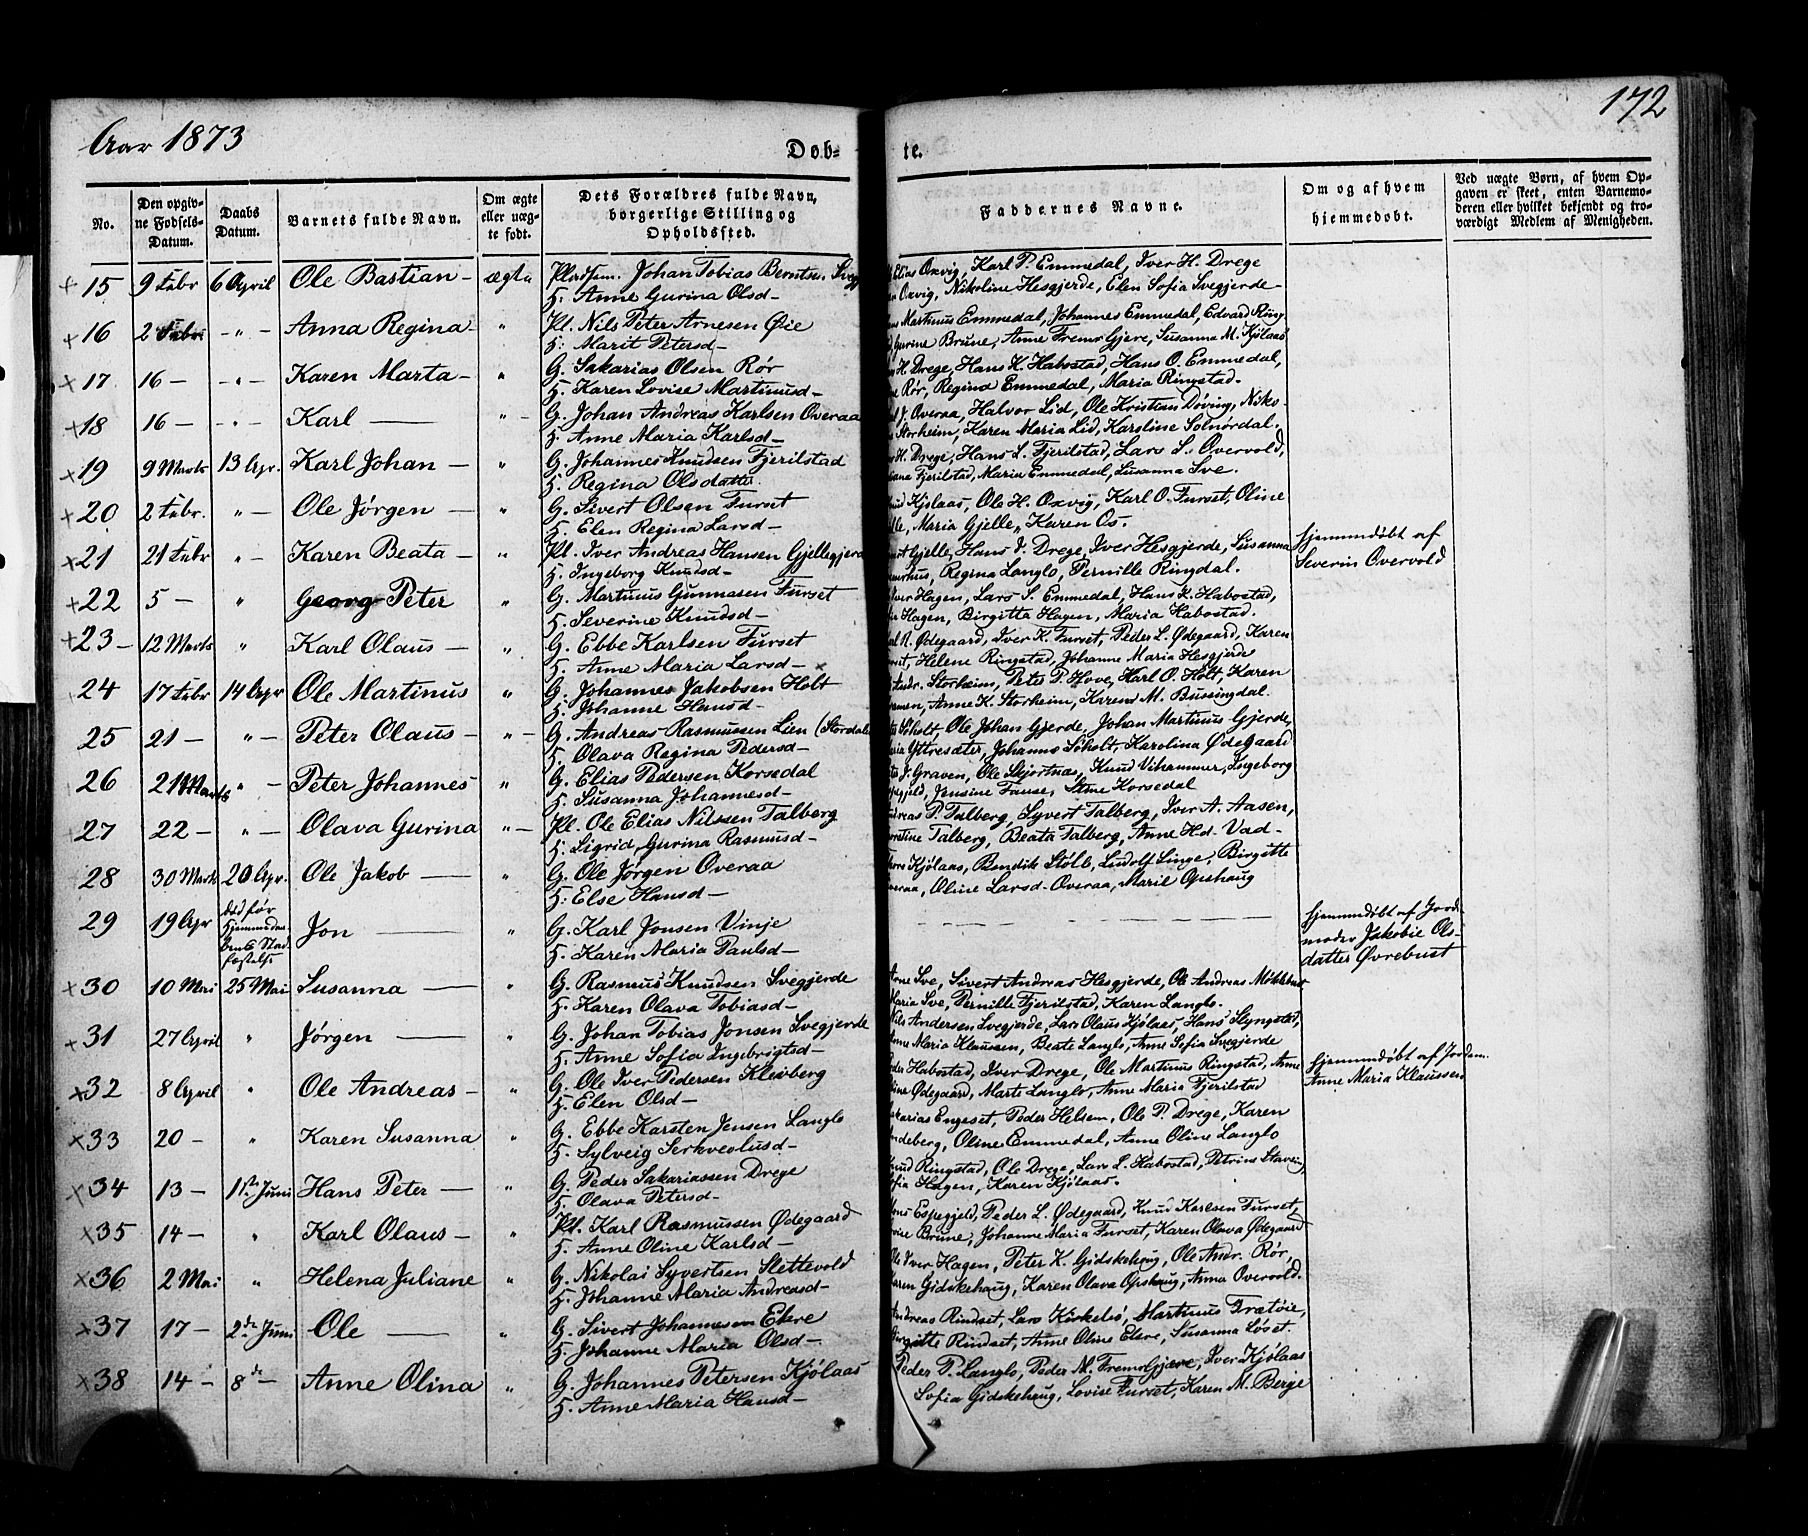 Aar 1873
Døb-
te.
172
No.
Den opgiv-
ne Fødsels-
Datum.
Daabs
Datum.
Barnets fulde Navn.
Om ægte
eller uæg-
te født.
Dets Forældres fulde Navn,
borgerlige Stilling og
Opholdssted.
Faddernes Navne.
Om og af hvem
hjemmedøbt.
Ved uægte Børn, af hvem Op-
gaven er skeet, enten Barnemo-
deren eller hvilket bekjendt og tro-
værdigt Medlem af Menigheden.
15 9 Febr 6 April Ole Bastian – ægte Pladsm. Johan Tobias Berntsen
H. Anne Gurina Olsd –
Elias Oxvig, Karl P. Emmedal, Iver H. Drege
Oxvig, Nikoline Hesgjerde, Elen Sofia Svegjerde
16 2 Febr. – " – Anna Regina – " Pl. Nils Peter Arnesen Øie
H: Marit Petersd –
Martinus Emmedal, Johannes Emmedal, Edvard Ring
Gurine Brune, Anne FremsGjere, Susanna M. Kjølaas
17. 16 – – " – Karen Marta – " G. Sakarias Olsen Rør
H. Karen Lovise Martinusd –
H. Drege, Hans K. Habostad, Hans O. Emmedal,
Rør, Regina Emmedal, Maria Ringstad.
18 16 – – " – Karl — " – G. Johan Andreas Karlsen Overaa
H. Anne Maria Karlsd –
Overaa, Halvor Lid, Ole Kristian Døving, Niko-
Storheim, Karen Maria Lid, Karoline Solnørdal.
19 9 Marts 13 Apr. Karl Johan – " G. Johannes Knudsen Fjerilstad
H. Regina Olsdatter.
H. Drege, Hans L. Fjerilstad, Lars L. Overvold,
Fjerilstad, Maria Emmedal, Susanna Sve.
20 2 Febr. " – Ole Jørgen – " G. Sivert Olsen Furset
H. Elen Regina Larsd –
Kjølaas, Ole H. Oxvig, Karl O. Furset, Oline
Maria Gjelle, Karen Os.
21 21 Febr " – Karen Beata – " Pl. Iver Andreas Hansen Gjellegjerde
H. Ingeborg Knudsd –
Gjelle, Hans I. Drege, Iver Hesgjerde, Susanna
Regina Langlo, Pernille Ringdal.
hjemmedøbt af
Severin Overvold
22 5 – " Georg Peter " G. Martinus Gunnasen Furset
H. Severine Knudsd –
Iver Hagen, Lars S. Emmedal, Hans K. Habostad,
Hagen, Birgitta Hagen, Maria Habostad.
23 – 12 Marts " Karl Olaus – " G. Ebbe Karlsen Furset
H. Anne Maria Larsd –
N. Ødegaard, Iver K. Furset, Peder L. Ødegaard, Karen
Helene Ringstad, Johanne Maria Hesgjerde
24 17 Febr 14 Apr Ole Martinus " G. Johannes Jakobsen Holt
H. Johanne Hansd –
Andr. Storheim, Peter P. Hove, Karl O. Holt, Karen
Anne K. Storheim, Karen M. Bussingdal.
25 21 – " – Peter Olaus – " – G. Andreas Rasmussen Lien (Stordalen
H. Olava Regina Pedersd –
Søholt, Ole Johan Gjerde, Johan Martinus Gjerde,
Yttresæter, Johanne Søholt, Karolina Ødegaard
26 21 Marts " – Peter Johannes " G. Elias Pedersen Korsedal
H. Susanna Johannesd –
Graven, Ole Skjortnæs, Knud Vihammer, Ingeborg
Jensine Fause, Stine Korsedal
27 22 – " – Olava Gurina " – Pl. Ole Elias Nilssen Talberg
H. Sigrid Gurina Rasmusd –
P. Talberg, Syvert Talberg, Iver A. Aasen,
Talberg, Beata Talberg, Anne Hd. Vad –
28 30 Marts 20 Apr. Ole Jakob — " G. Ole Jørgen Overaa
H: Else Hansd –
Kjølaas, Bendik Stølle, Ludolf Linge, Birgitte
Overaa, Oline Larsd. Overaa, Marie Opshaug
29 19 Apr død før
Hjemmedaa-
bens Stad-
fæstelse
Jon — " G. Karl Jonsen Vinje
H. Karen Maria Paulsd –
hjemmedøbt af Jord-
moder Jakobie Ols-
datter Øvrebust
30 10 Mai 25 Mai Susanna — " G. Rasmus Knudsen Svegjerde
H. Karen Olava Tobiasd –
Arne Sve, Sivert Andreas Hesgjerde, Ole Andreas
Maria Sve, Pernille Fjerilstad, Karen Langlo.
31 27 April " Jørgen — " G. Johan Tobias Jonsen Svegjerde
H. Anne Sofia Ingebrigtsd –
Nils Andersen Svegjerde, Lars Olaus Kjølaas, Hans Slyngstad,
Anne Maria Klaussen, Beate Langlo, Anne Sofia Svegjerde
32 8 April " Ole Andreas – " G. Ole Iver Pedersen Kleiberg
H. Elen Olsd –
Peder Habostad, Iver Drege, Ole Martinus Ringstad, Anne
Oline Ødegaard, Marte Langlo, Anne Maria Fjerilstad
hjemmedøbt af Jordem.
Anne Maria Klaussen
33 20 – " Karen Susanna " G. Ebbe Karsten Jensen Langlo
H. Sylveig
Sakarias Engeset, Peder Helsem, Ole P. Drege, Karen
Oline Emmedal, Anne Oline Langlo
34 13 – 1ste Juni Hans Peter — " G. Peder Sakariassen Drege
H. Olava Petersd –
Knud Ringstad, Ole Drege, Lars L. Habostad,
Sofia Hagen, Karen Kjølaas.
35 14 – " Karl Olaus – " Pl. Karl Rasmussen Ødegaard
H. Anne Oline Karlsd –
Espegjeld, Peder L. Ødegaard, Knud Karlsen Furset,
Brune, Johanne Maria Furset, Karen Olava Ødegaard
36 2 Mai " Helena Juliane " G. Nikolai Syvertsen Slettevold
H. Johanne Maria Andreasd –
Ole Iver Hagen, Peter K. Gidskehaug, Ole Andr. Rør,
Karen Gidskehaug, Karen Olava Opshaug, Anna Overvold.
37 17 – 2den Juni Ole — " G. Sivert Johannessen Ekre
H. Johanne Maria Olsd –
Andreas Rindset, Lars Kirkebø, Martinus Trætøie,
Birgitte Rindset, Anne Oline Ekre, Susanna Løset.
38 14 – 8de – Anne Olina " G. Johannes Petersen Kjølaas
H. Anne Maria Hansd –
Peder P. Langlo, Peder M. FremsGjære, Iver Kjølaas
Sofia Gidskehaug, Lovise Furset, Karen M. Berge